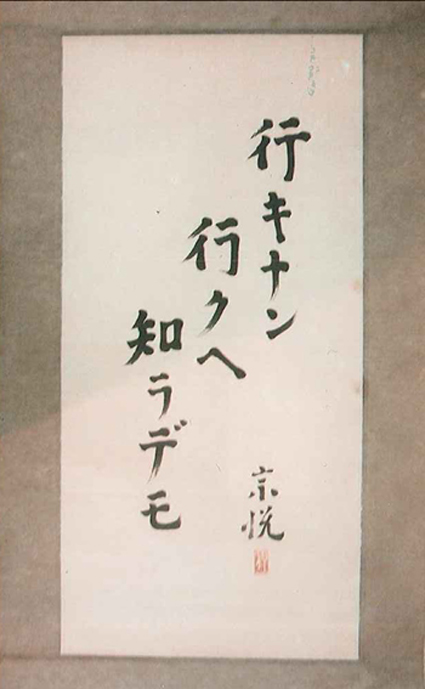 行キナン
行クヘ
知ラデモ
宗悦